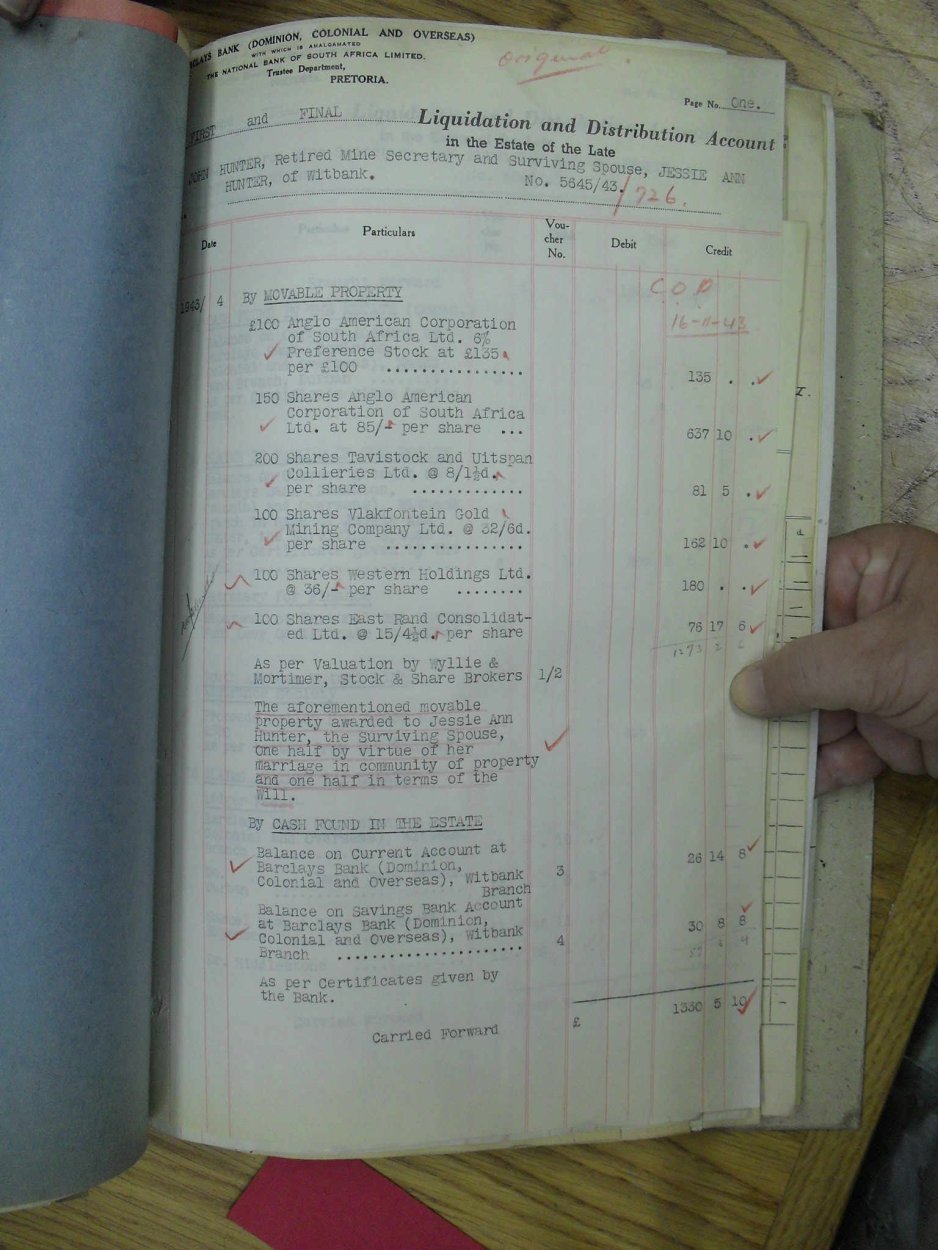 BARCLAYS BANK (DOMINION, COLONIAL AND OVERSEAS)
WITH WHICH IS AMALGAMATED
THE NATIONAL BANK OF SOUTH AFRICA LIMITED.
Trustee Department,
PRETORIA.
Original.
Page No. One.
FIRST and FINAL Liquidation and Distribution Account
in the Estate of the Late
JOHN HUNTER, Retired Mine Secretary and Surviving Spouse, JESSIE ANN
HUNTER, of Witbank. No. 5645/43./726.
Date Particulars Voucher No. Debit Credit
C.O.P
16-11-43
1943/ 4 By MOVABLE PROPERTY
£100 Anglo American Corporation
of South Africa Ltd. 6%
Preference Stock at £135
per £100 ................ 135 . .
150 Shares Anglo American
Corporation of South Africa
Ltd. at 85/- per share ... 637 10 .
200 Shares Tavistock and Uitspan
Collieries Ltd. @ 8/1½d.
per share ............. 81 5 .
100 Shares Vlakfontein Gold
Mining Company Ltd. @ 32/6d.
per share ................ 162 10 .
100 Shares Western Holdings Ltd.
@ 36/- per share ........ 180 . .
100 Shares East Rand Consolidat-
ed Ltd. @ 15/4½d. per share 76 17 6
1273 2 6
As per Valuation by Wyllie &
Mortimer, Stock & Share Brokers 1/2
The aforementioned movable
property awarded to Jessie Ann
Hunter, the Surviving Spouse,
One half by virtue of her
marriage in community of property
and one half in terms of the
Will.
By CASH FOUND IN THE ESTATE
Balance on Current Account at
Barclays Bank (Dominion,
Colonial and Overseas), Witbank
Branch 3 26 14 8
Balance on Savings Bank Account
at Barclays Bank (Dominion,
Colonial and Overseas), Witbank
Branch ...................... 4 30 8 8
As per Certificates given by
the Bank.
Carried Forward £ 1330 5 10